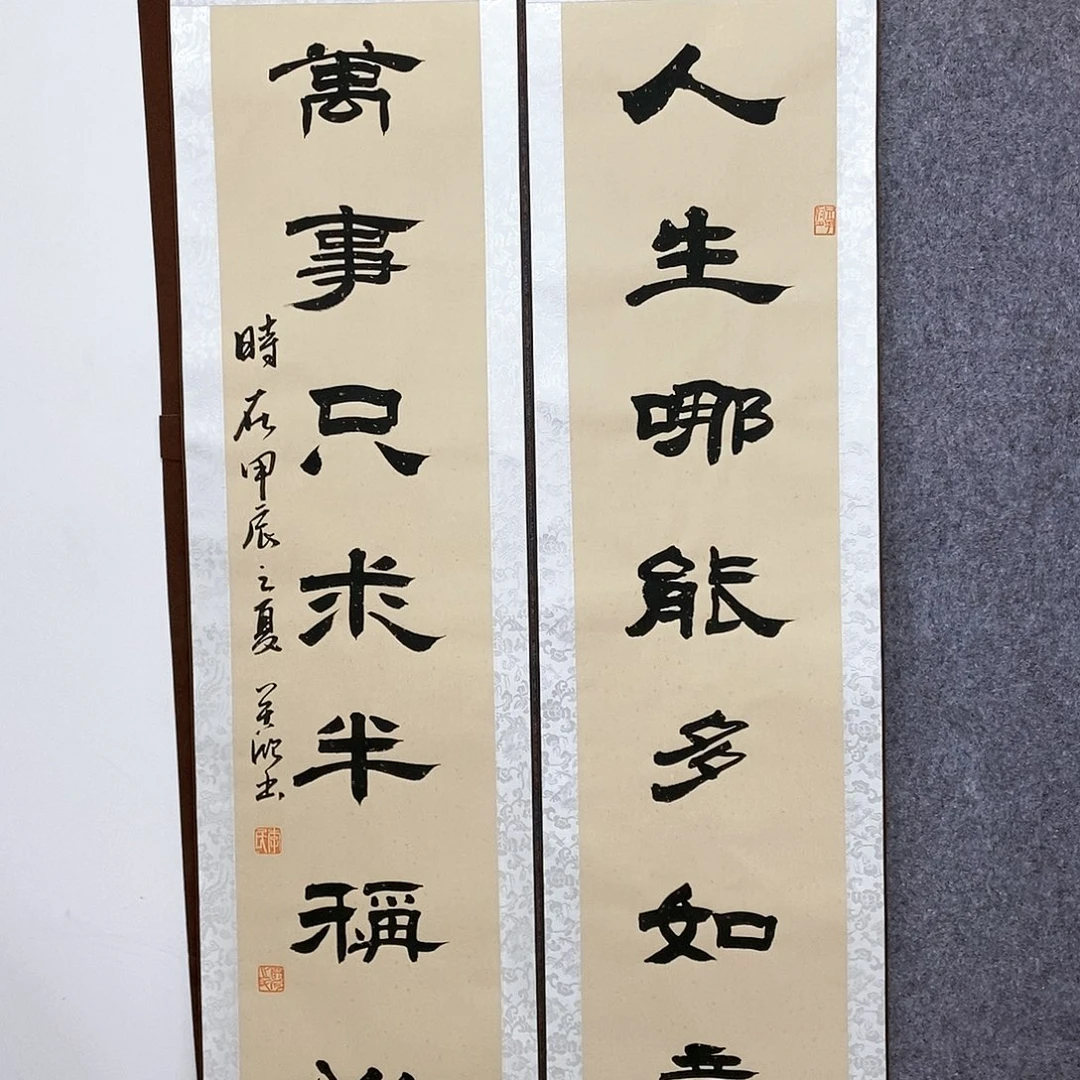 人生哪能多如意
萬事只求半稱心
時在甲辰之夏
書